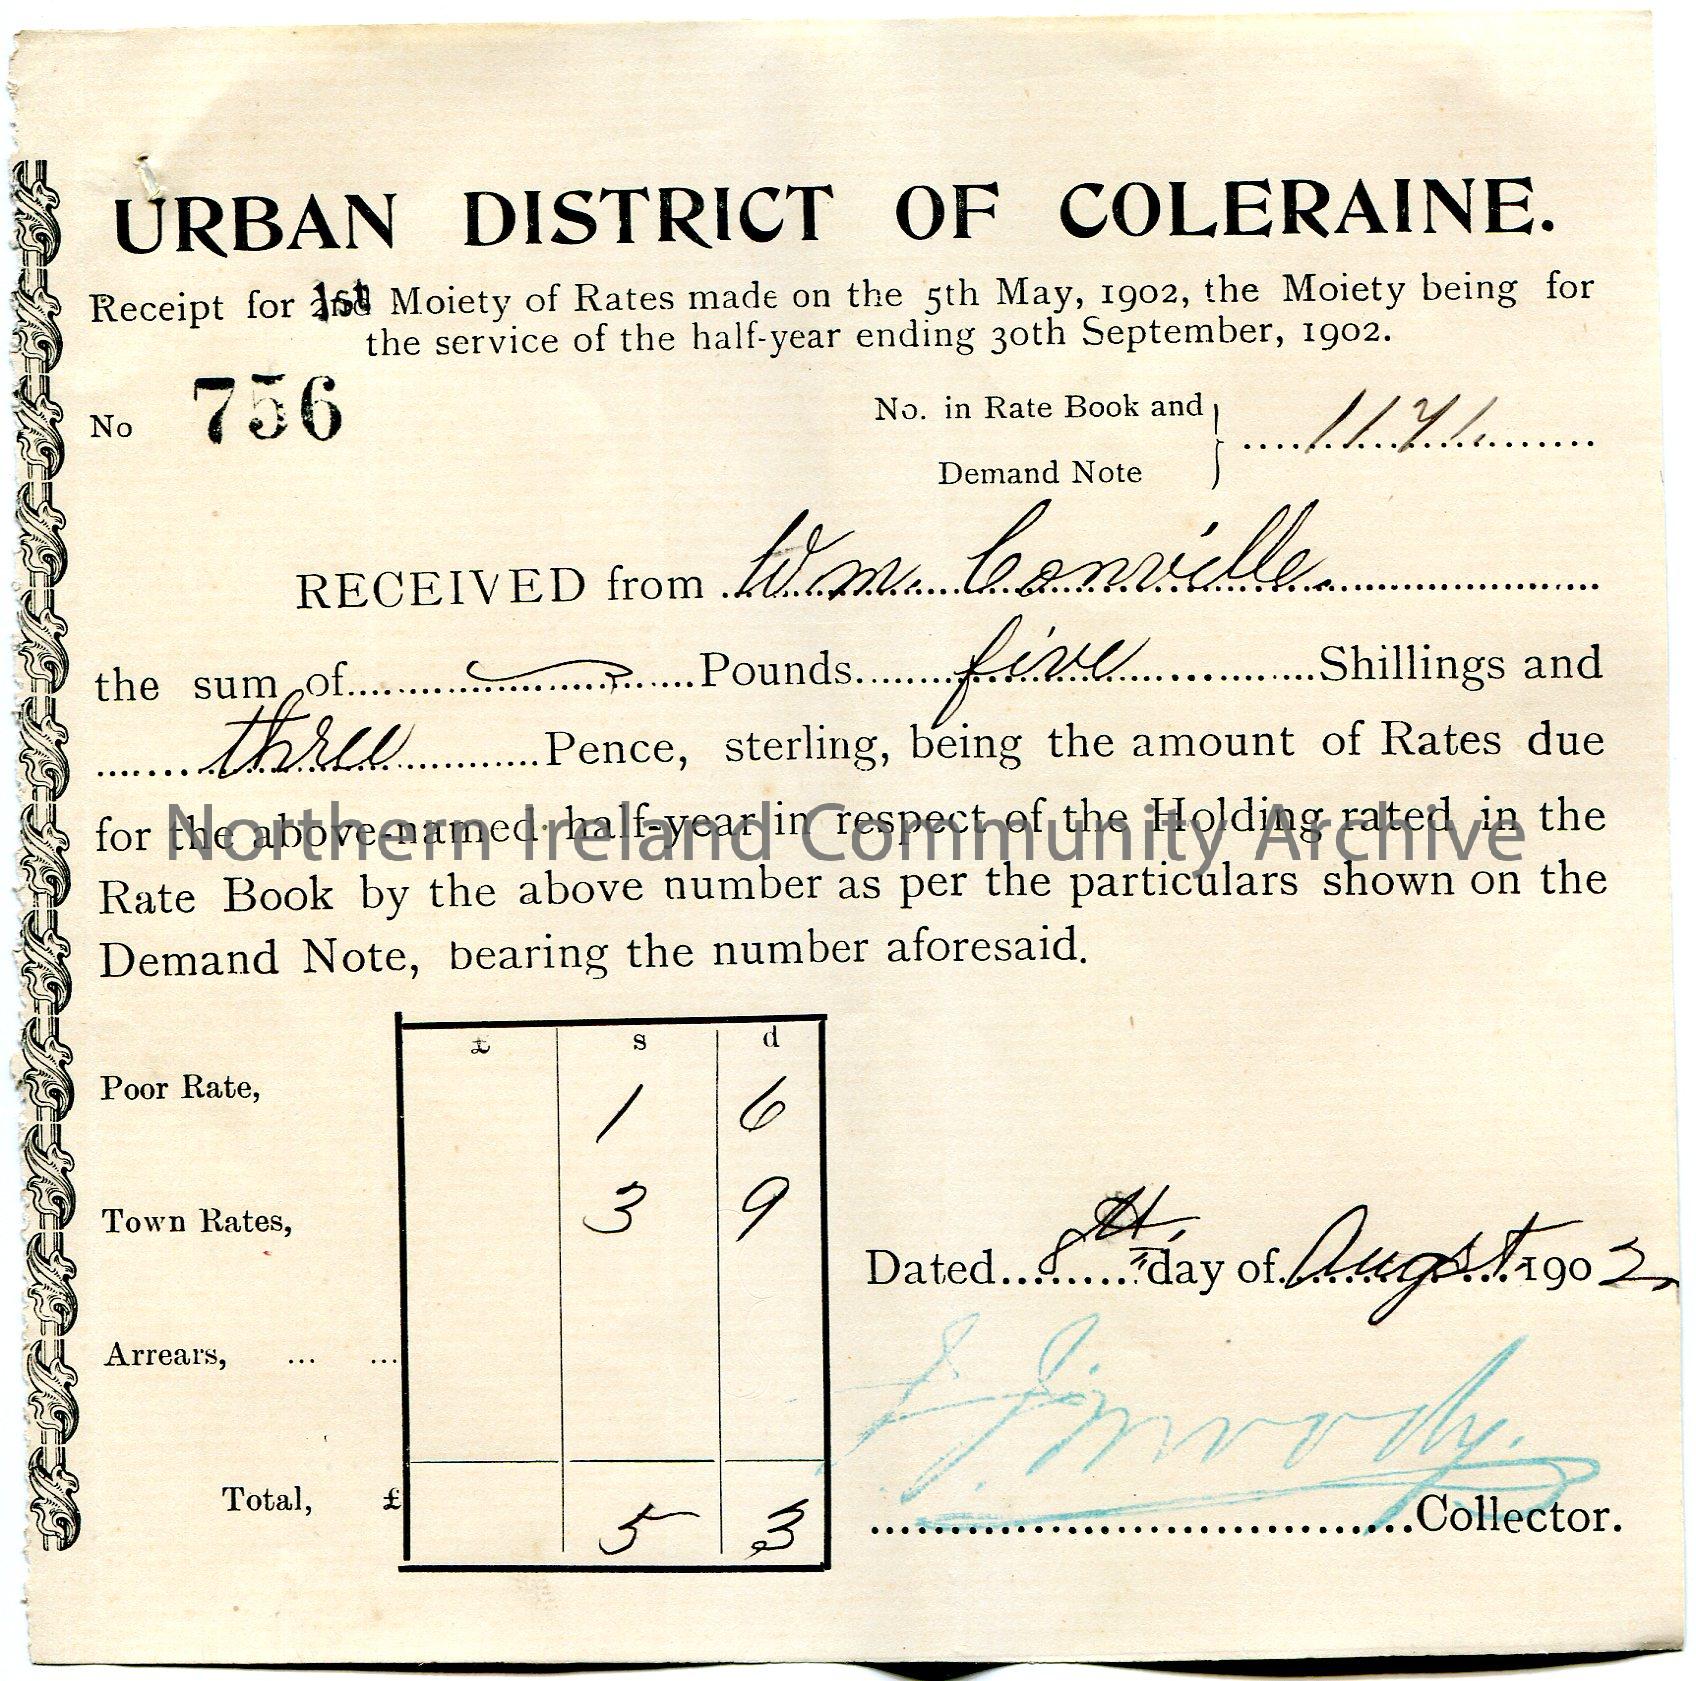 URBAN DISTRICT OF COLERAINE.
Receipt for 1st Moiety of Rates made on the 5th May, 1902, the Moiety being for
the service of the half-year ending 30th September, 1902.
No 756
No. in Rate Book and
Demand Note
1171
RECEIVED from Wm. Conville
the sum of Pounds five Shillings and
three Pence, sterling, being the amount of Rates due
for the above-named half-year in respect of the Holding rated in the
Northern Ireland Community Archive
Rate Book by the above number as per the particulars shown on the
Demand Note, bearing the number aforesaid.
£ s d
Poor Rate, 1 6
Town Rates, 3 9
Dated 8th day of Augst 1902
Arrears, ... ...
Total, £ 5 3
Collector.